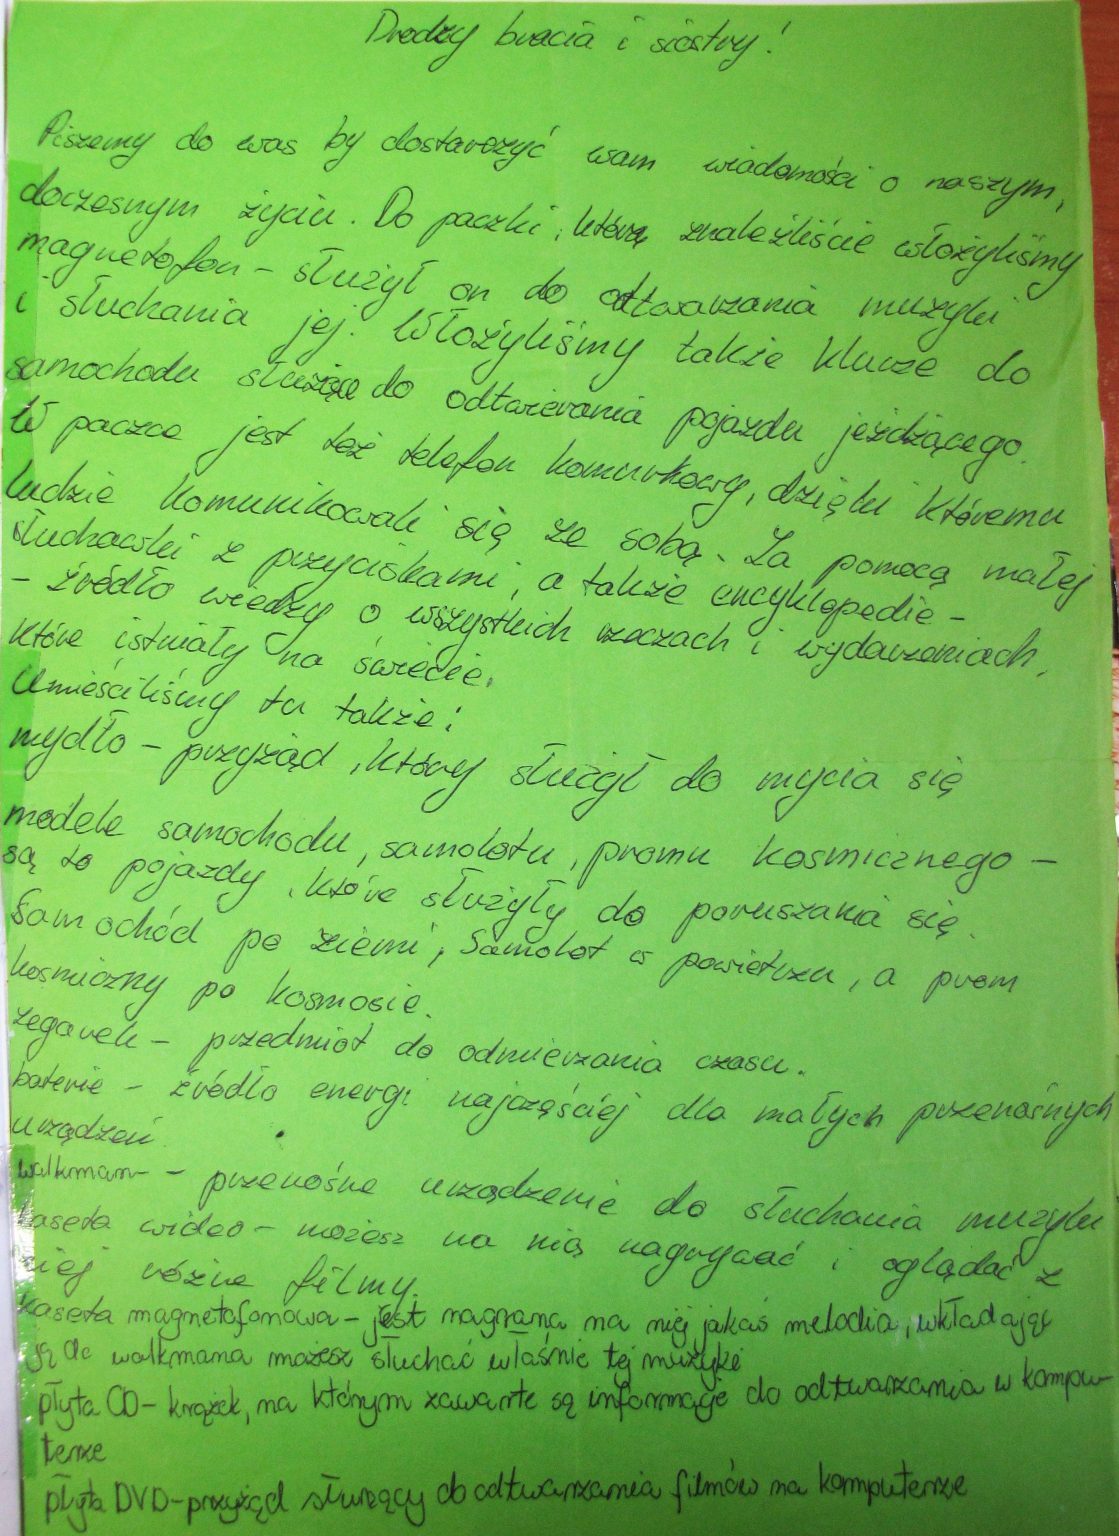 Drodzy bracia i siostry!
Piszemy do was by dostarczyć wam wiadomości o naszym,
doczesnym życiu. Do paczki, którą znaleźliście włożyliśmy
magnetofon - służył on do odtwarzania muzyki
i słuchania jej. Włożyliśmy także klucze do
samochodu służące do odtwierania pojazdu jeżdżącego.
W paczce jest też telefon komurkowy, dzięki któremu
ludzie komunikowali się ze sobą. Za pomocą małej
słuchawki z przyciskami, a także encyklopedie -
- źródło wiedzy o wszystkich rzeczach i wydarzeniach,
które istniały na świecie.
Umieściliśmy tu także:
mydło - przyrząd, który służył do mycia się
modele samochodu, samolotu, promu kosmicznego -
są to pojazdy, które służyły do poruszania się.
Samochód po ziemi, Samolot w powietrzu, a prom
kosmiczny po kosmosie.
zegarek - przedmiot do odmierzania czasu.
baterie - źródło energi najczęściej dla małych przenośnych
urządzeń.
walkman - przenośne urządzenie do słuchania muzyki
kaseta wideo - możesz na nią nagrywać i oglądać z
niej różne filmy.
kaseta magnetofonowa - jest nagrana na niej jakaś melodia, wkładając
ją do walkmana możesz słuchać właśnie tej muzyki
płyta CD - krążek, na którym zawarte są informacje do odtwarzania w kompu-
terze
płyta DVD - przyrząd służący do odtwarzania filmów na komputerze